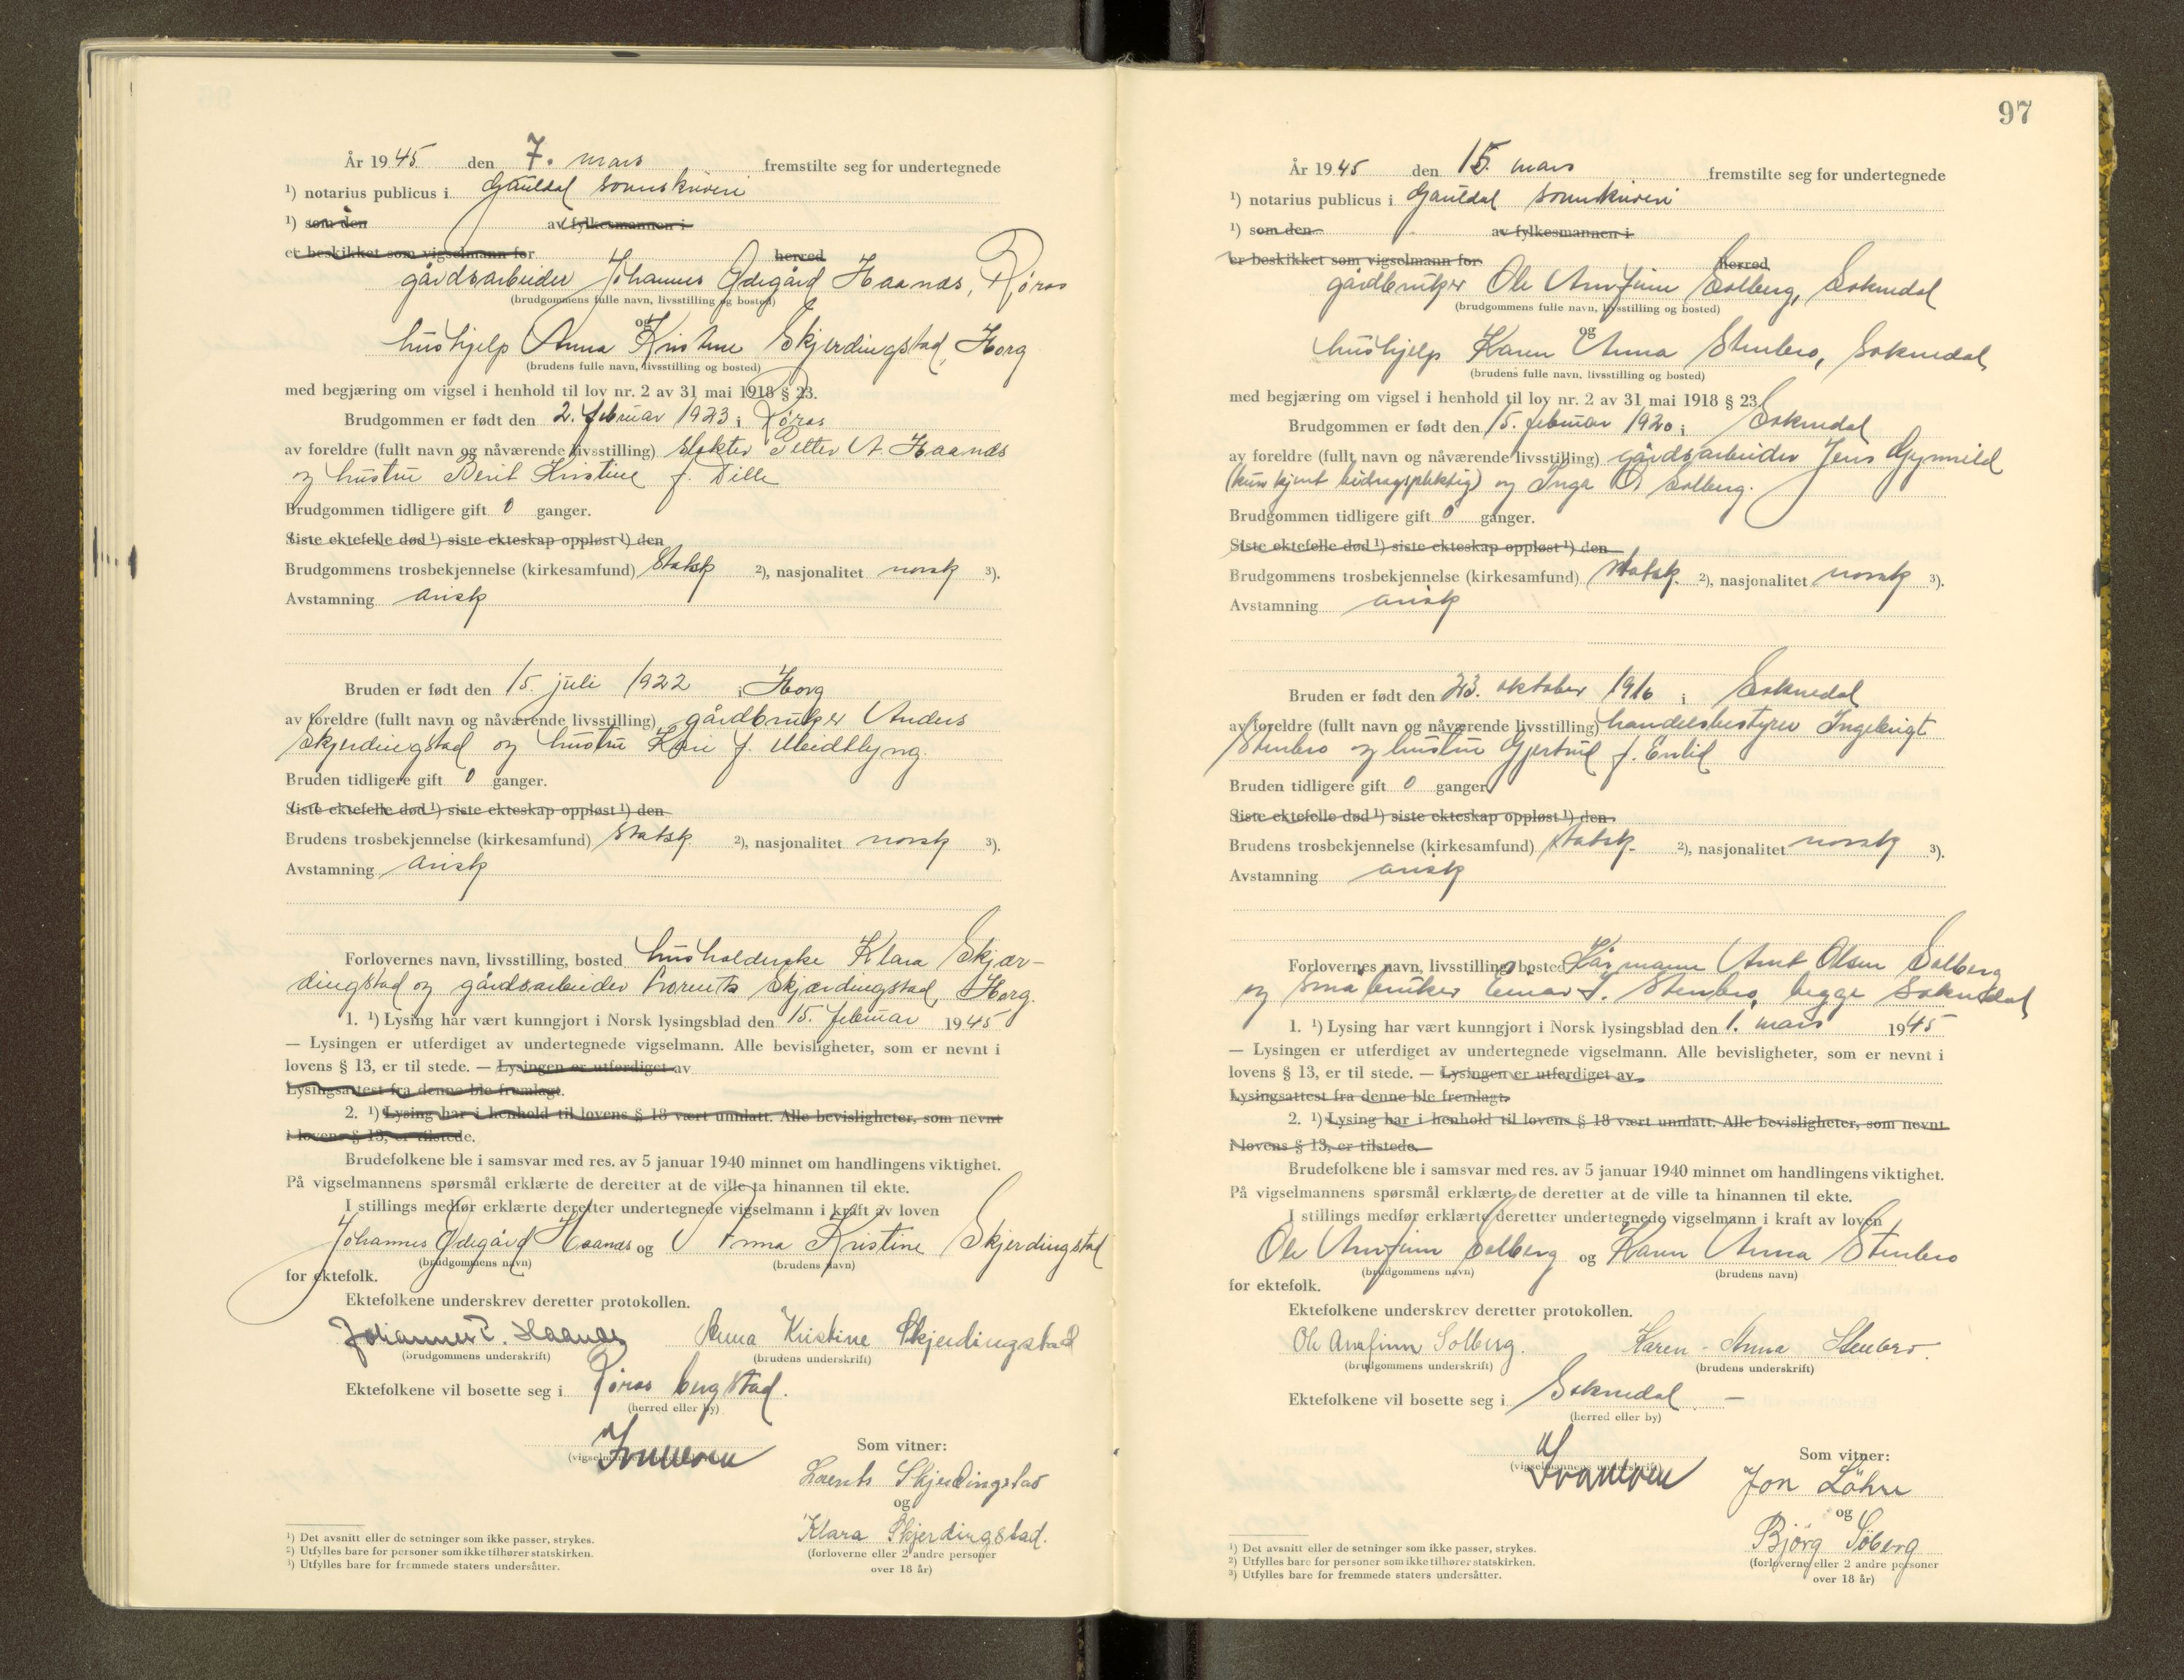 År 1945 den 7. mars fremstilte seg for undertegnede
¹) notarius publicus i Gauldal sorenskriveri
¹) som den av fylkesmannen i
er beskikket som vigselmann for herred
gårdsarbeider Johannes Ødegård Haanæs, Røros
(brudgommens fulle navn, livsstilling og bosted)
og
hushjelp Anna Kristine Skjerdingstad, Horg
(brudens fulle navn, livsstilling og bosted)
med begjæring om vigsel i henhold til lov nr. 2 av 31 mai 1918 § 23.
Brudgommen er født den 2. februar 1923 i Røros
av foreldre (fullt navn og nåværende livsstilling) slakter Petter A Haanæs
og hustru Berit Kristine f. Tille
Brudgommen tidligere gift 0 ganger.
Siste ektefelle død ¹) siste ekteskap oppløst ¹) den
Brudgommens trosbekjennelse (kirkesamfund) statsk ²), nasjonalitet norsk ³).
Avstamning arisk
Bruden er født den 15. juli 1922 i Horg
av foreldre (fullt navn og nåværende livsstilling) gårdbruker Anders
Skjerdingstad og hustru Kari f. Meidtlyng.
Bruden tidligere gift 0 ganger.
Siste ektefelle død ¹) siste ekteskap oppløst ¹) den
Brudens trosbekjennelse (kirkesamfund) statsk. ²), nasjonalitet norsk ³).
Avstamning arisk
Forlovernes navn, livsstilling, bosted husholderske Klara Skjær-
dingstad og gårdsarbeider Lorents Skjærdingstad, Horg.
1. ¹) Lysing har vært kunngjort i Norsk lysingsblad den 15. februar 1945
— Lysingen er utferdiget av undertegnede vigselmann. Alle bevisligheter, som er nevnt i
lovens § 13, er til stede. — Lysingen er utferdiget av
Lysingsattest fra denne ble fremlagt.
2. ¹) Lysing har i henhold til lovens § 18 vært unnlatt. Alle bevisligheter, som nevnt
i lovens § 13, er tilstede.
Brudefolkene ble i samsvar med res. av 5 januar 1940 minnet om handlingens viktighet.
På vigselmannens spørsmål erklærte de deretter at de ville ta hinannen til ekte.
I stillings medfør erklærte deretter undertegnede vigselmann i kraft av loven
Johannes Ødegård Haanæs og Anna Kristine Skjerdingstad
(brudgommens navn) (brudens navn)
for ektefolk.
Ektefolkene underskrev deretter protokollen.
Johannes P. Haanæs Anna Kristine Skjerdingstad
(brudgommens underskrift) (brudens underskrift)
Ektefolkene vil bosette seg i Røros bergstad.
(herred eller by)
Som vitner:
Lorents Skjerdingstad
og
Klara Skjerdingstad.
(forloverne eller 2 andre personer
over 18 år)
¹) Det avsnitt eller de setninger som ikke passer, strykes.
²) Utfylles bare for personer som ikke tilhører statskirken.
³) Utfylles bare for fremmede staters undersåtter.
97
År 1945 den 15. mars fremstilte seg for undertegnede
¹) notarius publicus i Gauldal sorenskriveri
¹) som den av fylkesmannen i
er beskikket som vigselmann for herred
gårdbruker Ole Arnfinn Solberg, Soknedal
(brudgommens fulle navn, livsstilling og bosted)
og
hushjelp Karen Anna Stenbro, Soknedal
(brudens fulle navn, livsstilling og bosted)
med begjæring om vigsel i henhold til lov nr. 2 av 31 mai 1918 § 23
Brudgommen er født den 15. februar 1920 i Soknedal
av foreldre (fullt navn og nåværende livsstilling) gårdsarbeider Jens Gynnild
(kun kjent bidragspliktig) og Inga O. Solberg.
Brudgommen tidligere gift 0 ganger.
Siste ektefelle død ¹) siste ekteskap oppløst ¹) den
Brudgommens trosbekjennelse (kirkesamfund) statsk. ²), nasjonalitet norsk ³).
Avstamning arisk
Bruden er født den 23. oktober 1916 i Soknedal
av foreldre (fullt navn og nåværende livsstilling) handelsbestyrer Ingebrigt
Stenbro og hustru Gjertrud f. Enlid
Bruden tidligere gift 0 ganger
Siste ektefelle død ¹) siste ekteskap oppløst ¹) den
Brudens trosbekjennelse (kirkesamfund) statsk. ²), nasjonalitet norsk ³).
Avstamning arisk
Forlovernes navn, livsstilling, bosted kårmann Arnt Olsen Solberg
og småbruker Einar I. Stenbro, begge Soknedal
1. ¹) Lysing har vært kunngjort i Norsk lysingsblad den 1. mars 1945
— Lysingen er utferdiget av undertegnede vigselmann. Alle bevisligheter, som er nevnt i
lovens § 13, er til stede. — Lysingen er utferdiget av
Lysingsattest fra denne ble fremlagt.
2. ¹) Lysing har i henhold til lovens § 18 vært unnlatt. Alle bevisligheter, som nevnt
i lovens § 13, er tilstede.
Brudefolkene ble i samsvar med res. av 5 januar 1940 minnet om handlingens viktighet.
På vigselmannens spørsmål erklærte de deretter at de ville ta hinannen til ekte.
I stillings medfør erklærte deretter undertegnede vigselmann i kraft av loven
Ole Arnfinn Solberg og Karen Anna Stenbro
(brudgommens navn) (brudens navn)
for ektefolk.
Ektefolkene underskrev deretter protokollen.
Ole Arnfinn Solberg. Karen - Anna Stenbro.
(brudgommens underskrift) (brudens underskrift)
Ektefolkene vil bosette seg i Soknedal —
(herred eller by)
(vigselmannens underskrift)
Som vitner:
Jon Løhre
og
Bjørg Søberg
(forloverne eller 2 andre personer
over 18 år)
¹) Det avsnitt eller de setninger som ikke passer, strykes.
²) Utfylles bare for personer som ikke tilhører statskirken.
³) Utfylles bare for fremmede staters undersåtter.